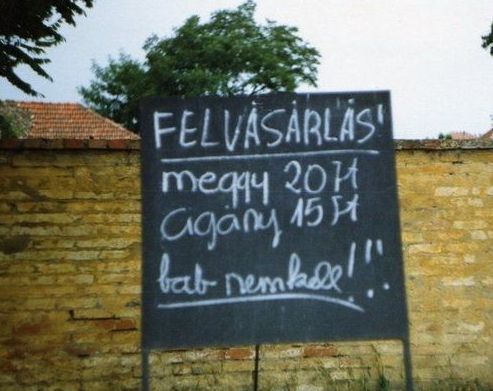 FELVÁSÁRLÁS!
meggy 20 Ft
cigány 15 Ft
bab nem kell!!!